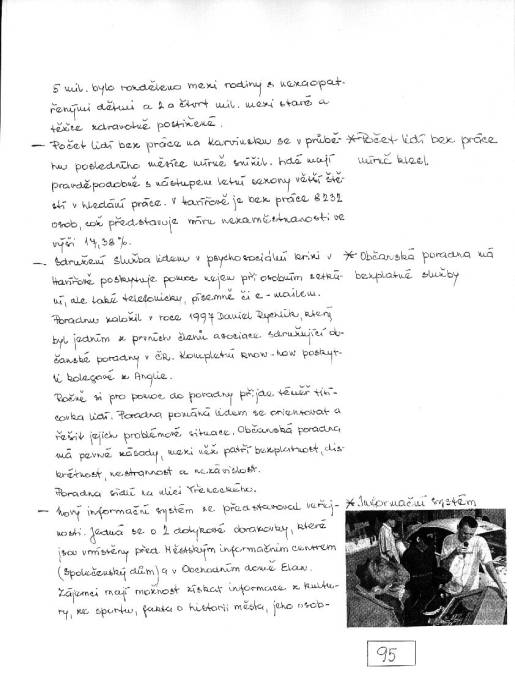 5 mil. bylo rozděleno mezi rodiny s nezaopat-
řenými dětmi a 2 a čtvrt mil. mezi staré a
těžce zdravotně postižené.
— Počet lidí bez práce na Karvinsku se v průbě-
hu posledního měsíce mírně snížil. Lidé mají
pravděpodobně s nástupem letní sezony větší ště-
stí v hledání práce. V Havířově je bez práce 8232
osob, což představuje míru nezaměstnanosti ve
výši 17,38%.
* Počet lidí bez práce
mírně klesl.
— Sdružení Služba lidem v psychosociální krizi v
Havířově poskytuje pomoc nejen při osobním setká-
ní, ale také telefonicky, písemně či e-mailem.
Poradnu založil v roce 1997 Daniel Rychlík, který
byl jedním z prvních členů asociace sdružující ob-
čanské poradny v ČR. Kompletní know-how poskyt-
li kolegové z Anglie.
Ročně si pro pomoc do poradny přijde téměř tisí-
covka lidí. Poradna pomáhá lidem se orientovat a
řešit jejich problémové situace. Občanská poradna
má pevné zásady, mezi něž patří bezplatnost, dis-
krétnost, nestrannost a nezávislost.
Poradna sídlí na ulici
* Občanská poradna má
bezplatné služby
— Nový informační systém se představoval veřej-
nosti. Jedná se o 2 dotykové obrazovky, které
jsou umístěny před Městským informačním centrem
(Společenský dům) a v Obchodním domě Elan.
Zájemci mají možnost získat informace z kultu-
ry, ze sportu, fakta o historii města, jeho osob-
* Informační systém
95